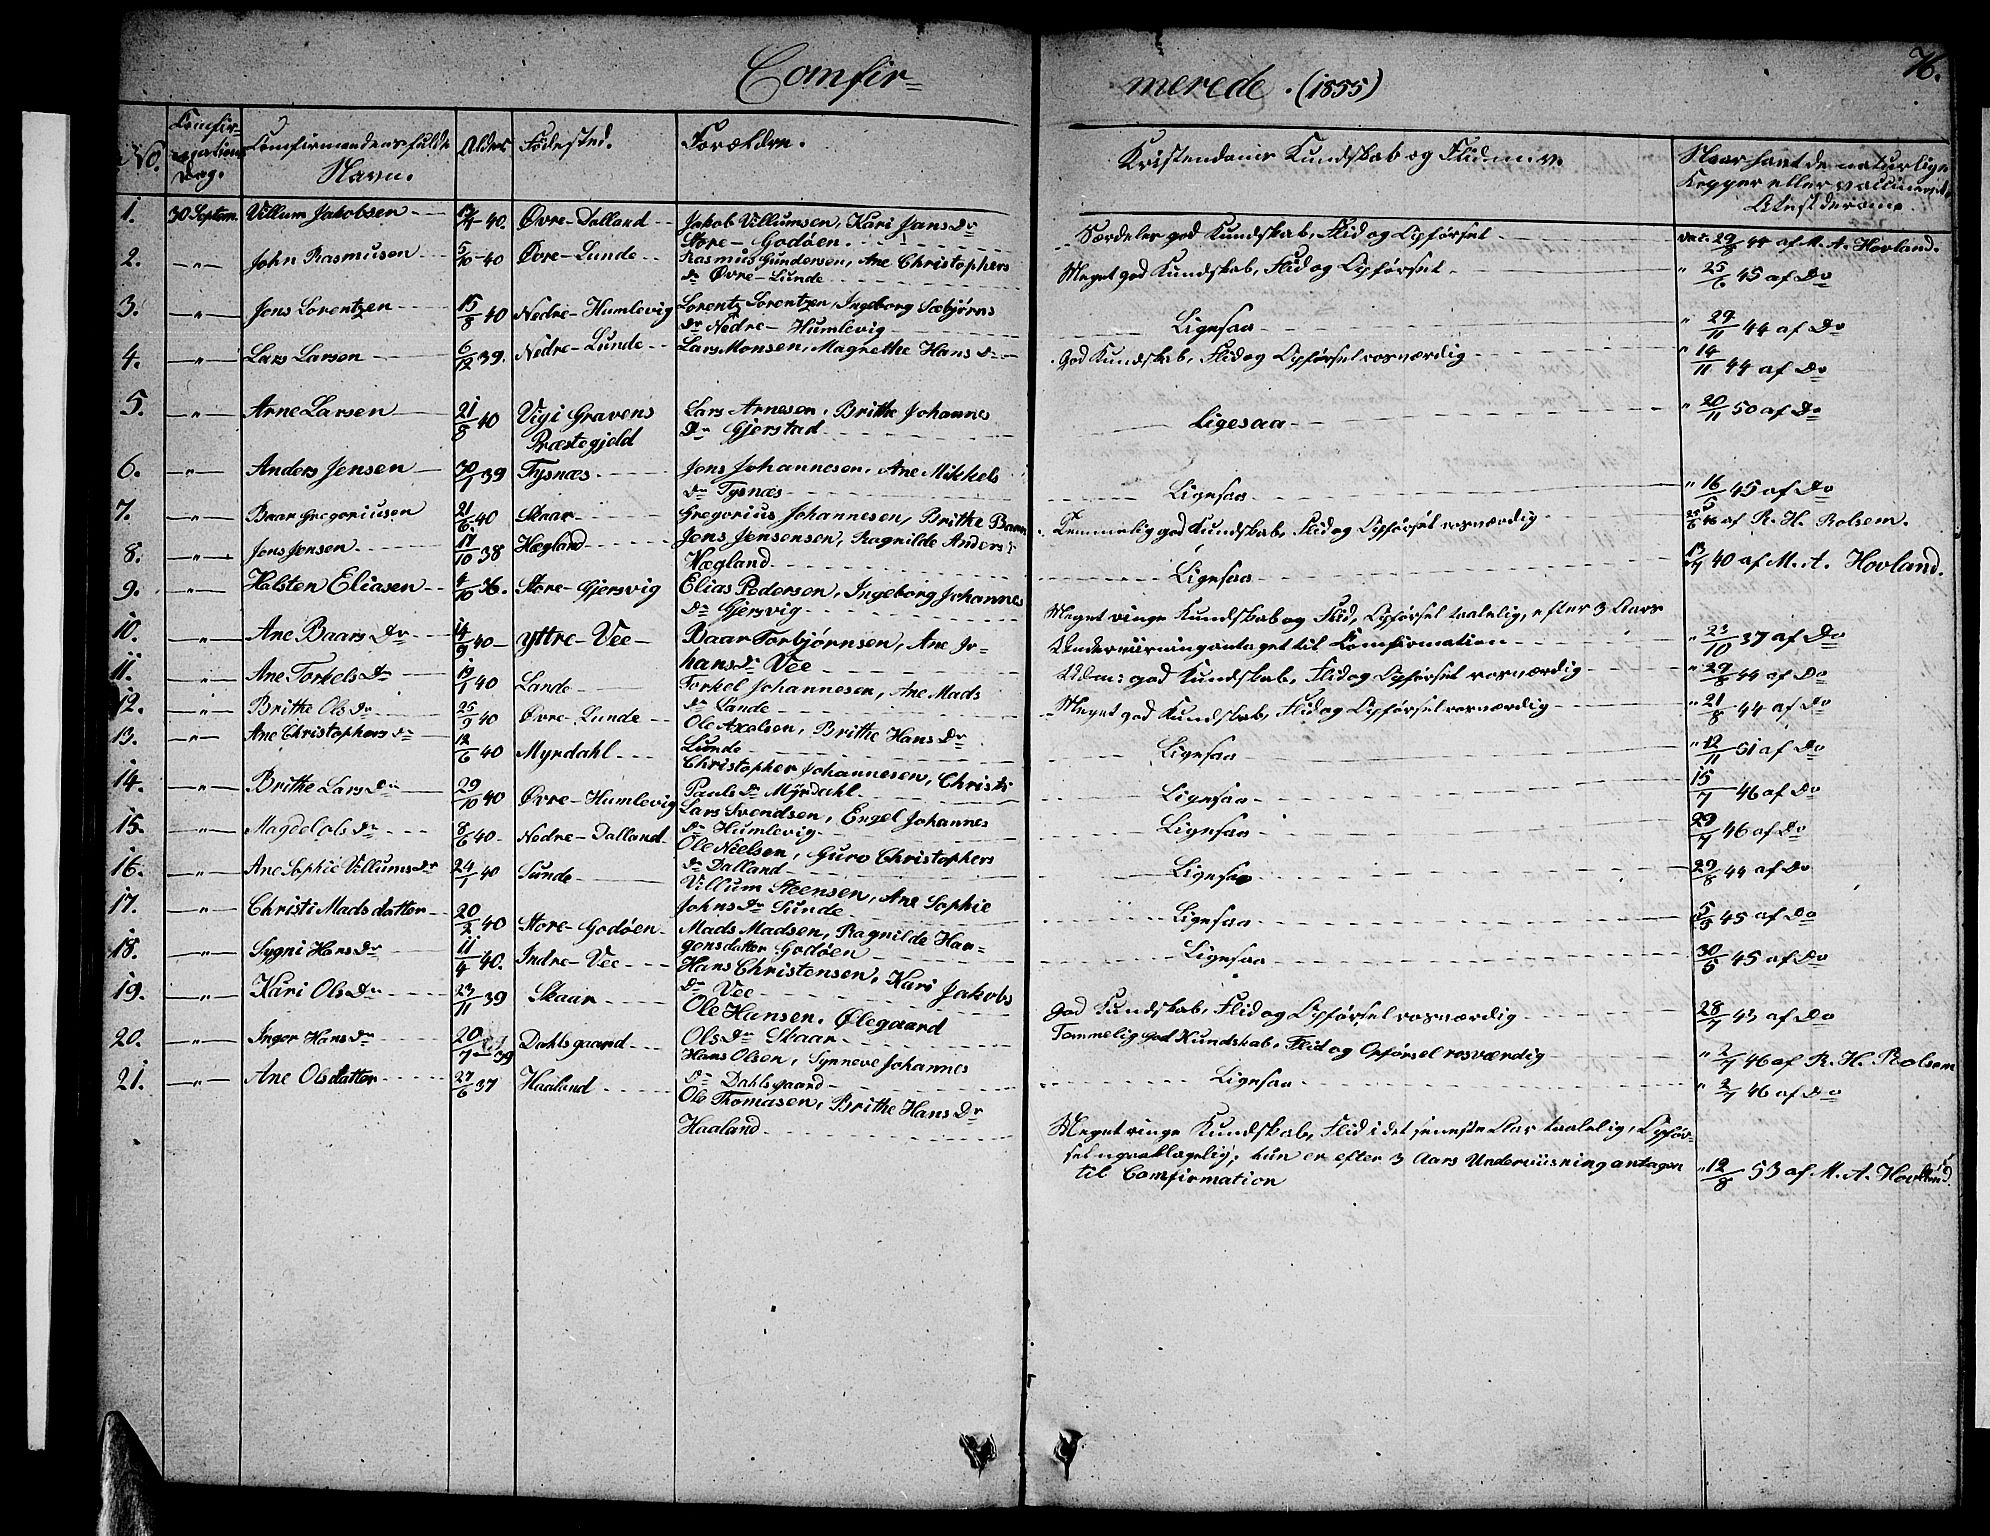 Comfir=
merede. (1855)
76.
No. Comfir= mations Dag. Comfirmandens fulde Navn. Alder Fødested. Forældre. Kristendoms Kundskab og Flid m. v.
1. 30 Septem. Villum Jakobsen 40. Øvre-Dalland Jakob Villumsen, Kari Jans Dr Særdeles god Kundskab, Flid og Opførsel vac. 29/8 44 af M. A. Hovland.
Store-Godøen.
2. " John Rasmusen 5/10 40 Øvre-Lunde Rasmus Gundersen, Ane Christophers Meget god Kundskab, Flid og Opførsel " 25/6 45 af Do
Dr Øvre-Lunde
3. " Jens Lorentzen 15/8 40 Nedre-Humlevig Lorentz Lorentzen, Ingeborg Sæbjørns Ligesaa " 29/11 44 af Do
Dr Nedre-Humlevig
4. " Lars Larsen 6/12 39. Nedre-Lunde Lars Monsen, Magrethe Hans Dr God Kundskab, Flid og Opførsel rosværdig " 14/11 44 af Do
5. " Arne Larsen 21/5 40 Vigi Gravens Lars Arnesen, Brithe Johannes Ligesaa " 20/11 50 af Do
Præstegjeld Dr Gjerstad
6. " Anders Jensen 30/1 39 Tysnæs Jens Johannesen, Ane Mikkels Ligesaa " 16/5 45 af Do
Dr Tysnæs
7. " Baar Gregoriusen 21/6 40 Skaar Gregorius Johannesen, Brithe Baars Temmelig god Kundskab, Flid og Opførsel rosværdig af R. H. Rolsem.
8. " Jens Jensen 17/10 38 Hægland Jens Jensensen, Ragnilde Anders Ligesaa 13/7 40 af M. A. Hovland.
Hægland
9. " Halsten Eliasen 4/10 36. Store-Gjersvig Elias Pedersen, Ingeborg Johannes Meget ringe Kundskab og Flid, Opførsel taalelig, efter 3 Aars
Dr Gjersvig Underviisning antaget til Comfirmation " 23/10 37 af Do
10. " Ane Baars Dr 14/9 40 Yttre-Vee Baar Torbjørnsen, Ane Jo= god Kundskab, Flid og Opførsel rosværdig " 29/8 44 af Do
hans Dr Vee
11. " Ane Torkels Dr 19/1 40 Lande Torkel Johannesen, Ane Mads Meget god Kundskab, Flid og Opførsel rosværdig " 21/8 44 af Do
Dr Lande
12. " Brithe Ols Dr 25/9 40 Øvre-Lunde Ole Axelsen, Brithe Hans Dr Ligesaa " 12/11 51 af Do
Lunde
13. " Ane Christophers Dr 12/6 40 Myrdahl Christopher Johannesen, Christi Ligesaa 15/7 46 af Do
Pauls Dr Myrdahl
14. " Brithe Lars Dr 29/10 40 Øvre-Humlevig Lars Svendsen, Engel Johannes Ligesaa 29/7 46 af Do
Dr Humlevig
15. " Magdel Ols Dr 8/6 40 Nedre-Dalland Ole Nielsen, Guro Christophers Ligesaa 29/8 44 af Do
Dr Dalland
16. " Ane Sophie Villums Dr 24/1 40 Sunde Villum Steensen, Ane Sophie Ligesaa 5/5 45 af Do
Johns Dr Sunde
17. " Christi Madsdatter 20/2 40 Store-Godøen Mads Madsen, Ragnilde Han= Ligesaa 30/5 45 af Do
gensdatter Godøen
18. " Sygni Hans Dr 11/4 40. Indre-Vee Hans Christensen, Kari Jakobs God Kundskab, Flid og Opførsel rosværdig 28/7 43 af Do
Dr Vee
19. " Kari Ols Dr 23/11 39 Skaar Ole Hansen, Ølegaard Temmelig god Kundskab, Flid og Opførsel rosværdig " 2/7 46 af R. H. Rolsem
Ols Dr Skaar
20. " Inger Hans Dr 20/7 39 Dahlsgaard Hans Olsen, Synneve Johannes Ligesaa " 2/7 46 af Do
Dr Dahlsgaard
21. " Ane Olsdatter 27/6 37 Haaland Ole Thomasen, Brithe Hans Dr Meget ringe Kundskab, Flid i det seneste Aar taalelig, Opfør=
Haaland sel upaaklagelig; hun er efter 3 Aars Underviisning antagen " 12/8 53 af M. A. Hovland.
til Comfirmation